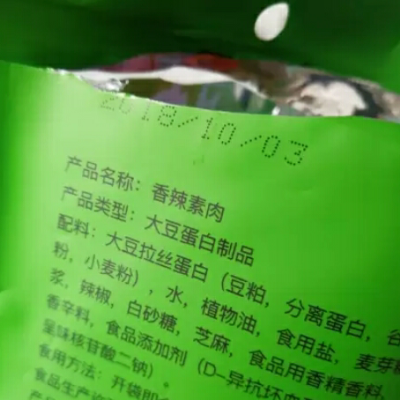 2018/10/03
产品名称：香辣素肉
产品类型：大豆蛋白制品
配料：大豆拉丝蛋白（豆粕，分离蛋白，谷
粉，小麦粉），水，植物油，食用盐，麦芽
浆，辣椒，白砂糖，芝麻，食品用香精香料，
香辛料，食品添加剂（D-异抗坏
呈味核苷酸二钠）。
食用方法：开袋即
食品生产许